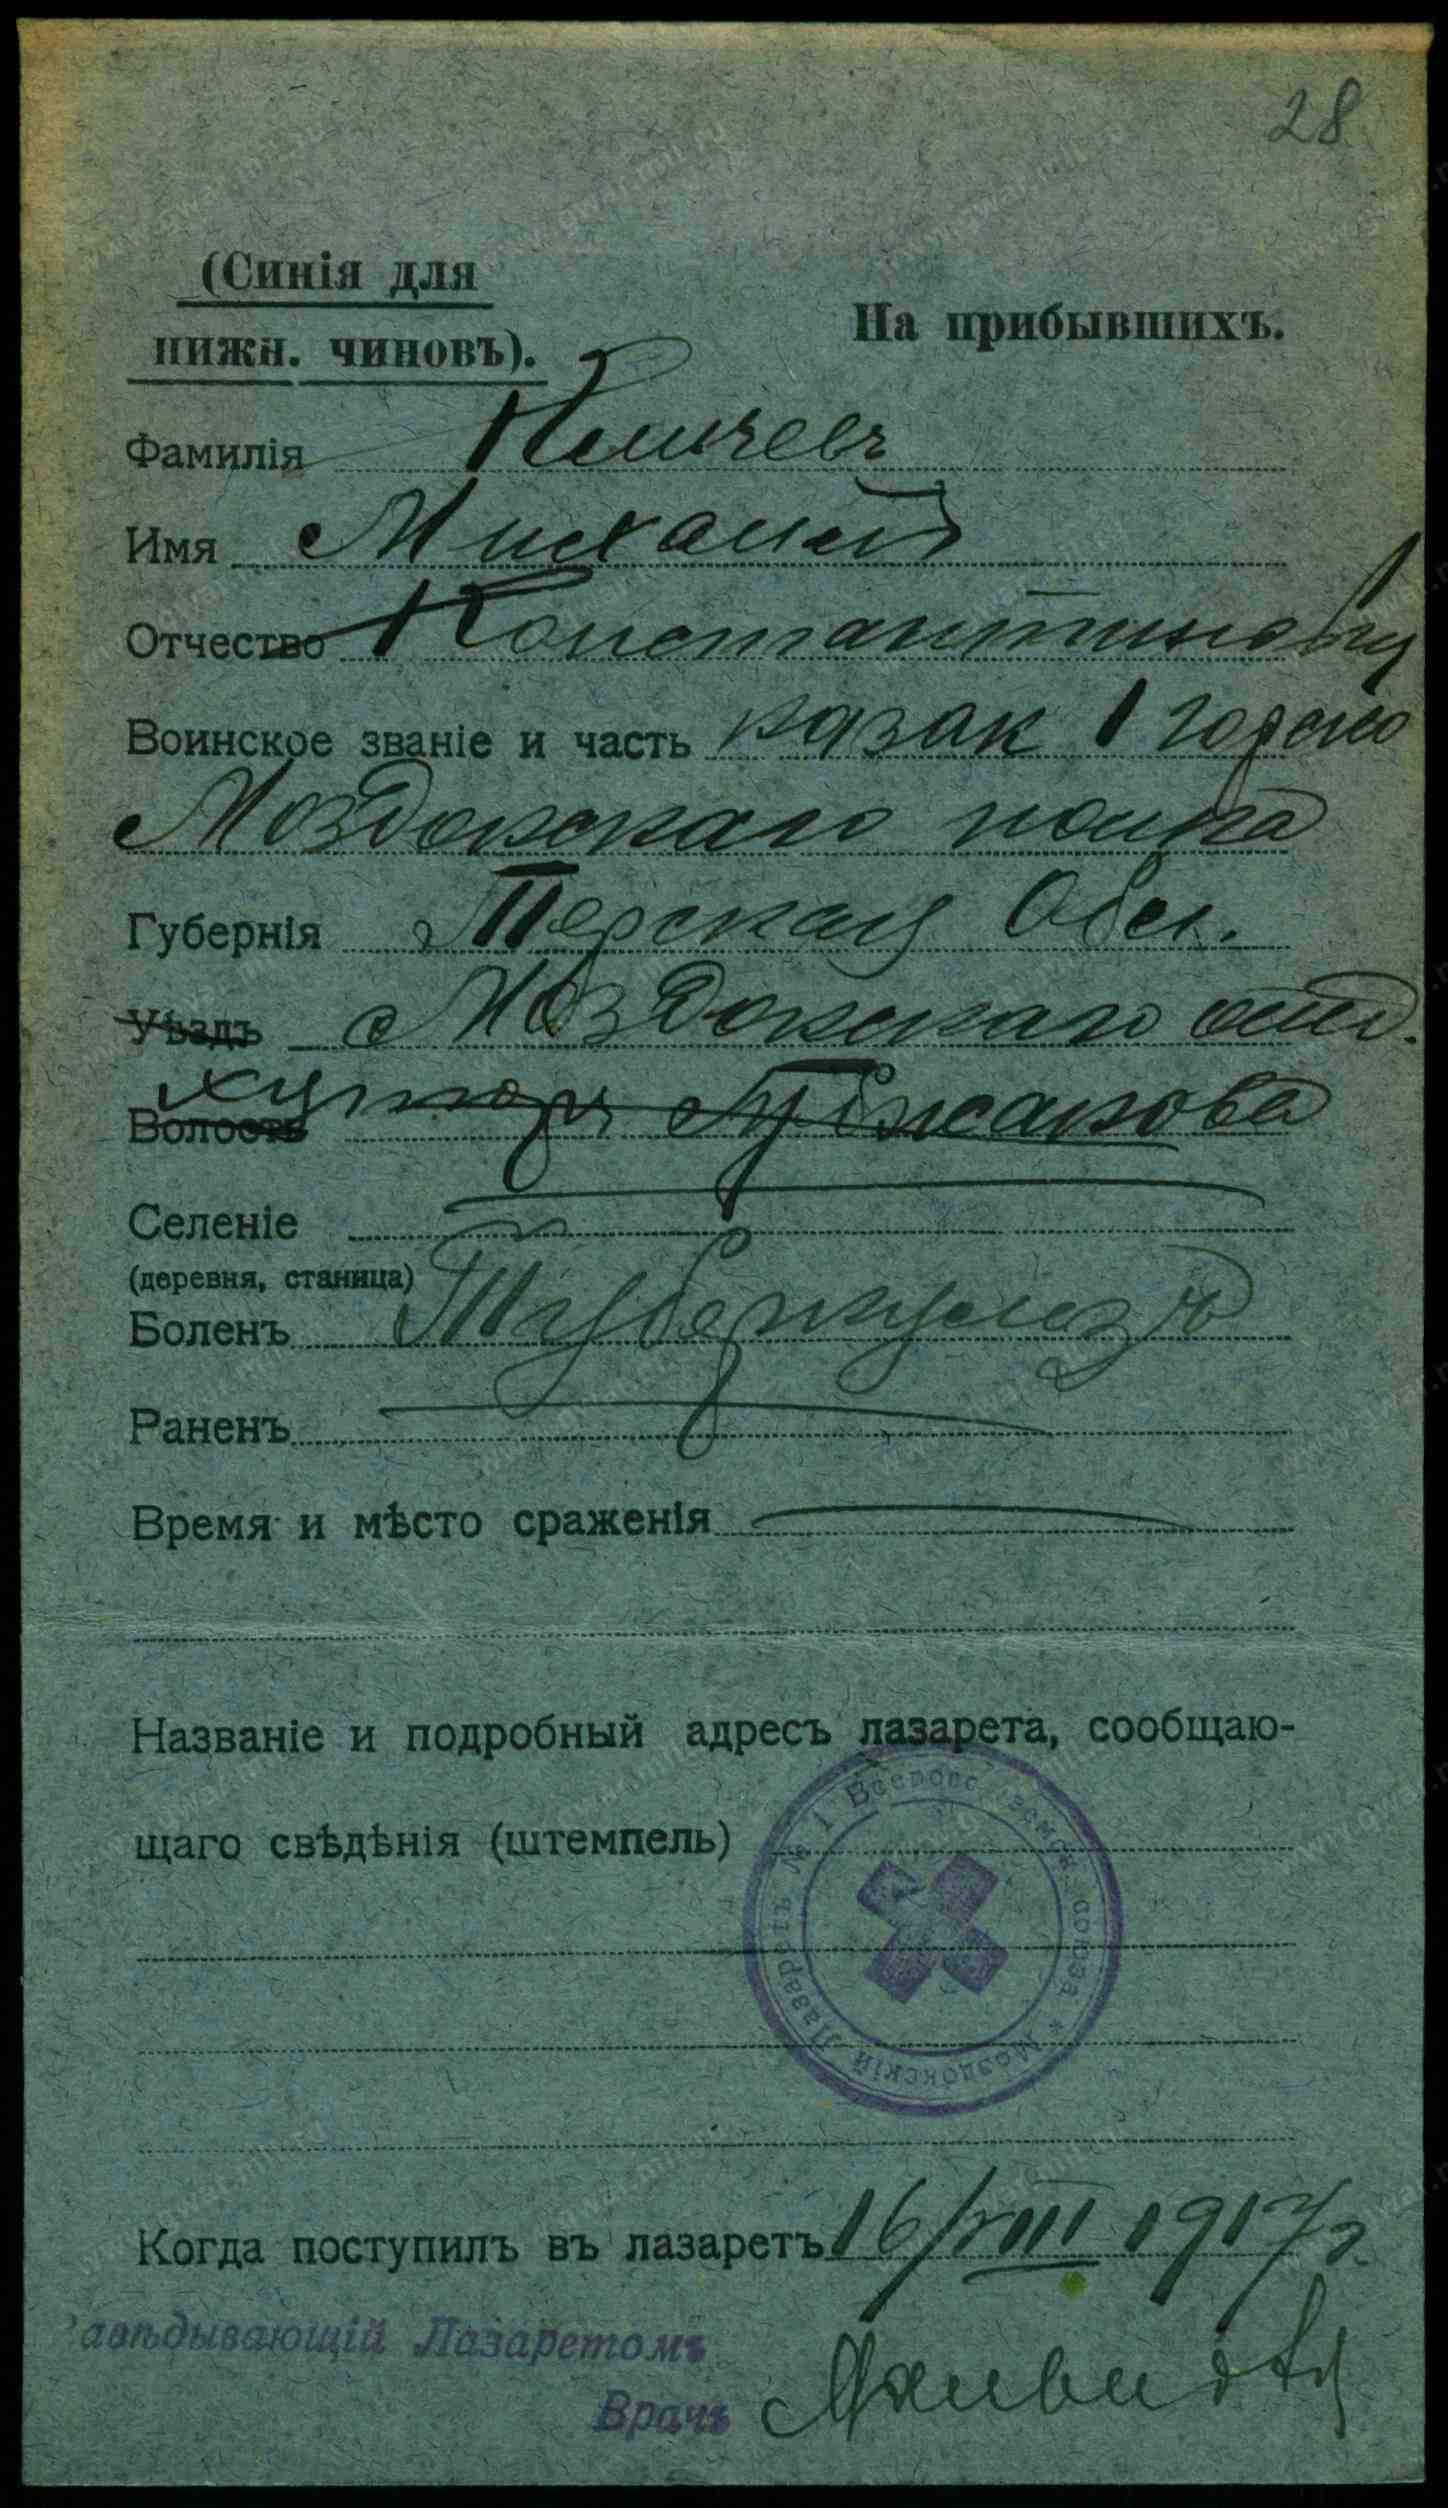 28
(Синія для
нижн. чиновъ).
На прибывшихъ.
Фамилія Климчевъ
Имя Михаилъ
Отчество Константиновъ
Воинское званіе и часть казак 1 Горско
Моздокскаго полка
Губернія Терская Обл.
Уѣздъ Моздокскаго отд.
Волость хуторъ
Селеніе
(деревня, станица)
Боленъ Туберкулезъ
Раненъ
Время и мѣсто сраженія
Названіе и подробный адресъ лазарета, сообщаю-
щаго свѣдѣнія (штемпель)
Моздокскій Лазаретъ № 1 Всеросс. земск. союза *
Когда поступилъ въ лазаретъ 16/VIII 1917 г.
авѣдывающій Лазаретомъ
Врачъ